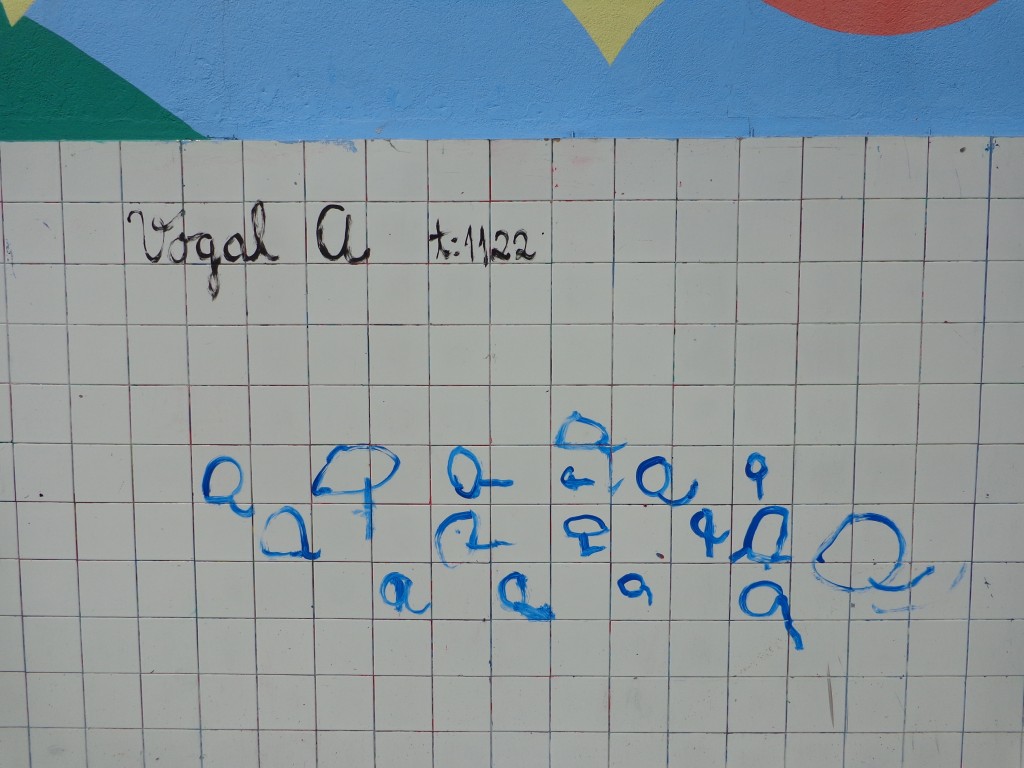 Vogal a t:1122
a a a a a a a
a a a a a a
a a a a